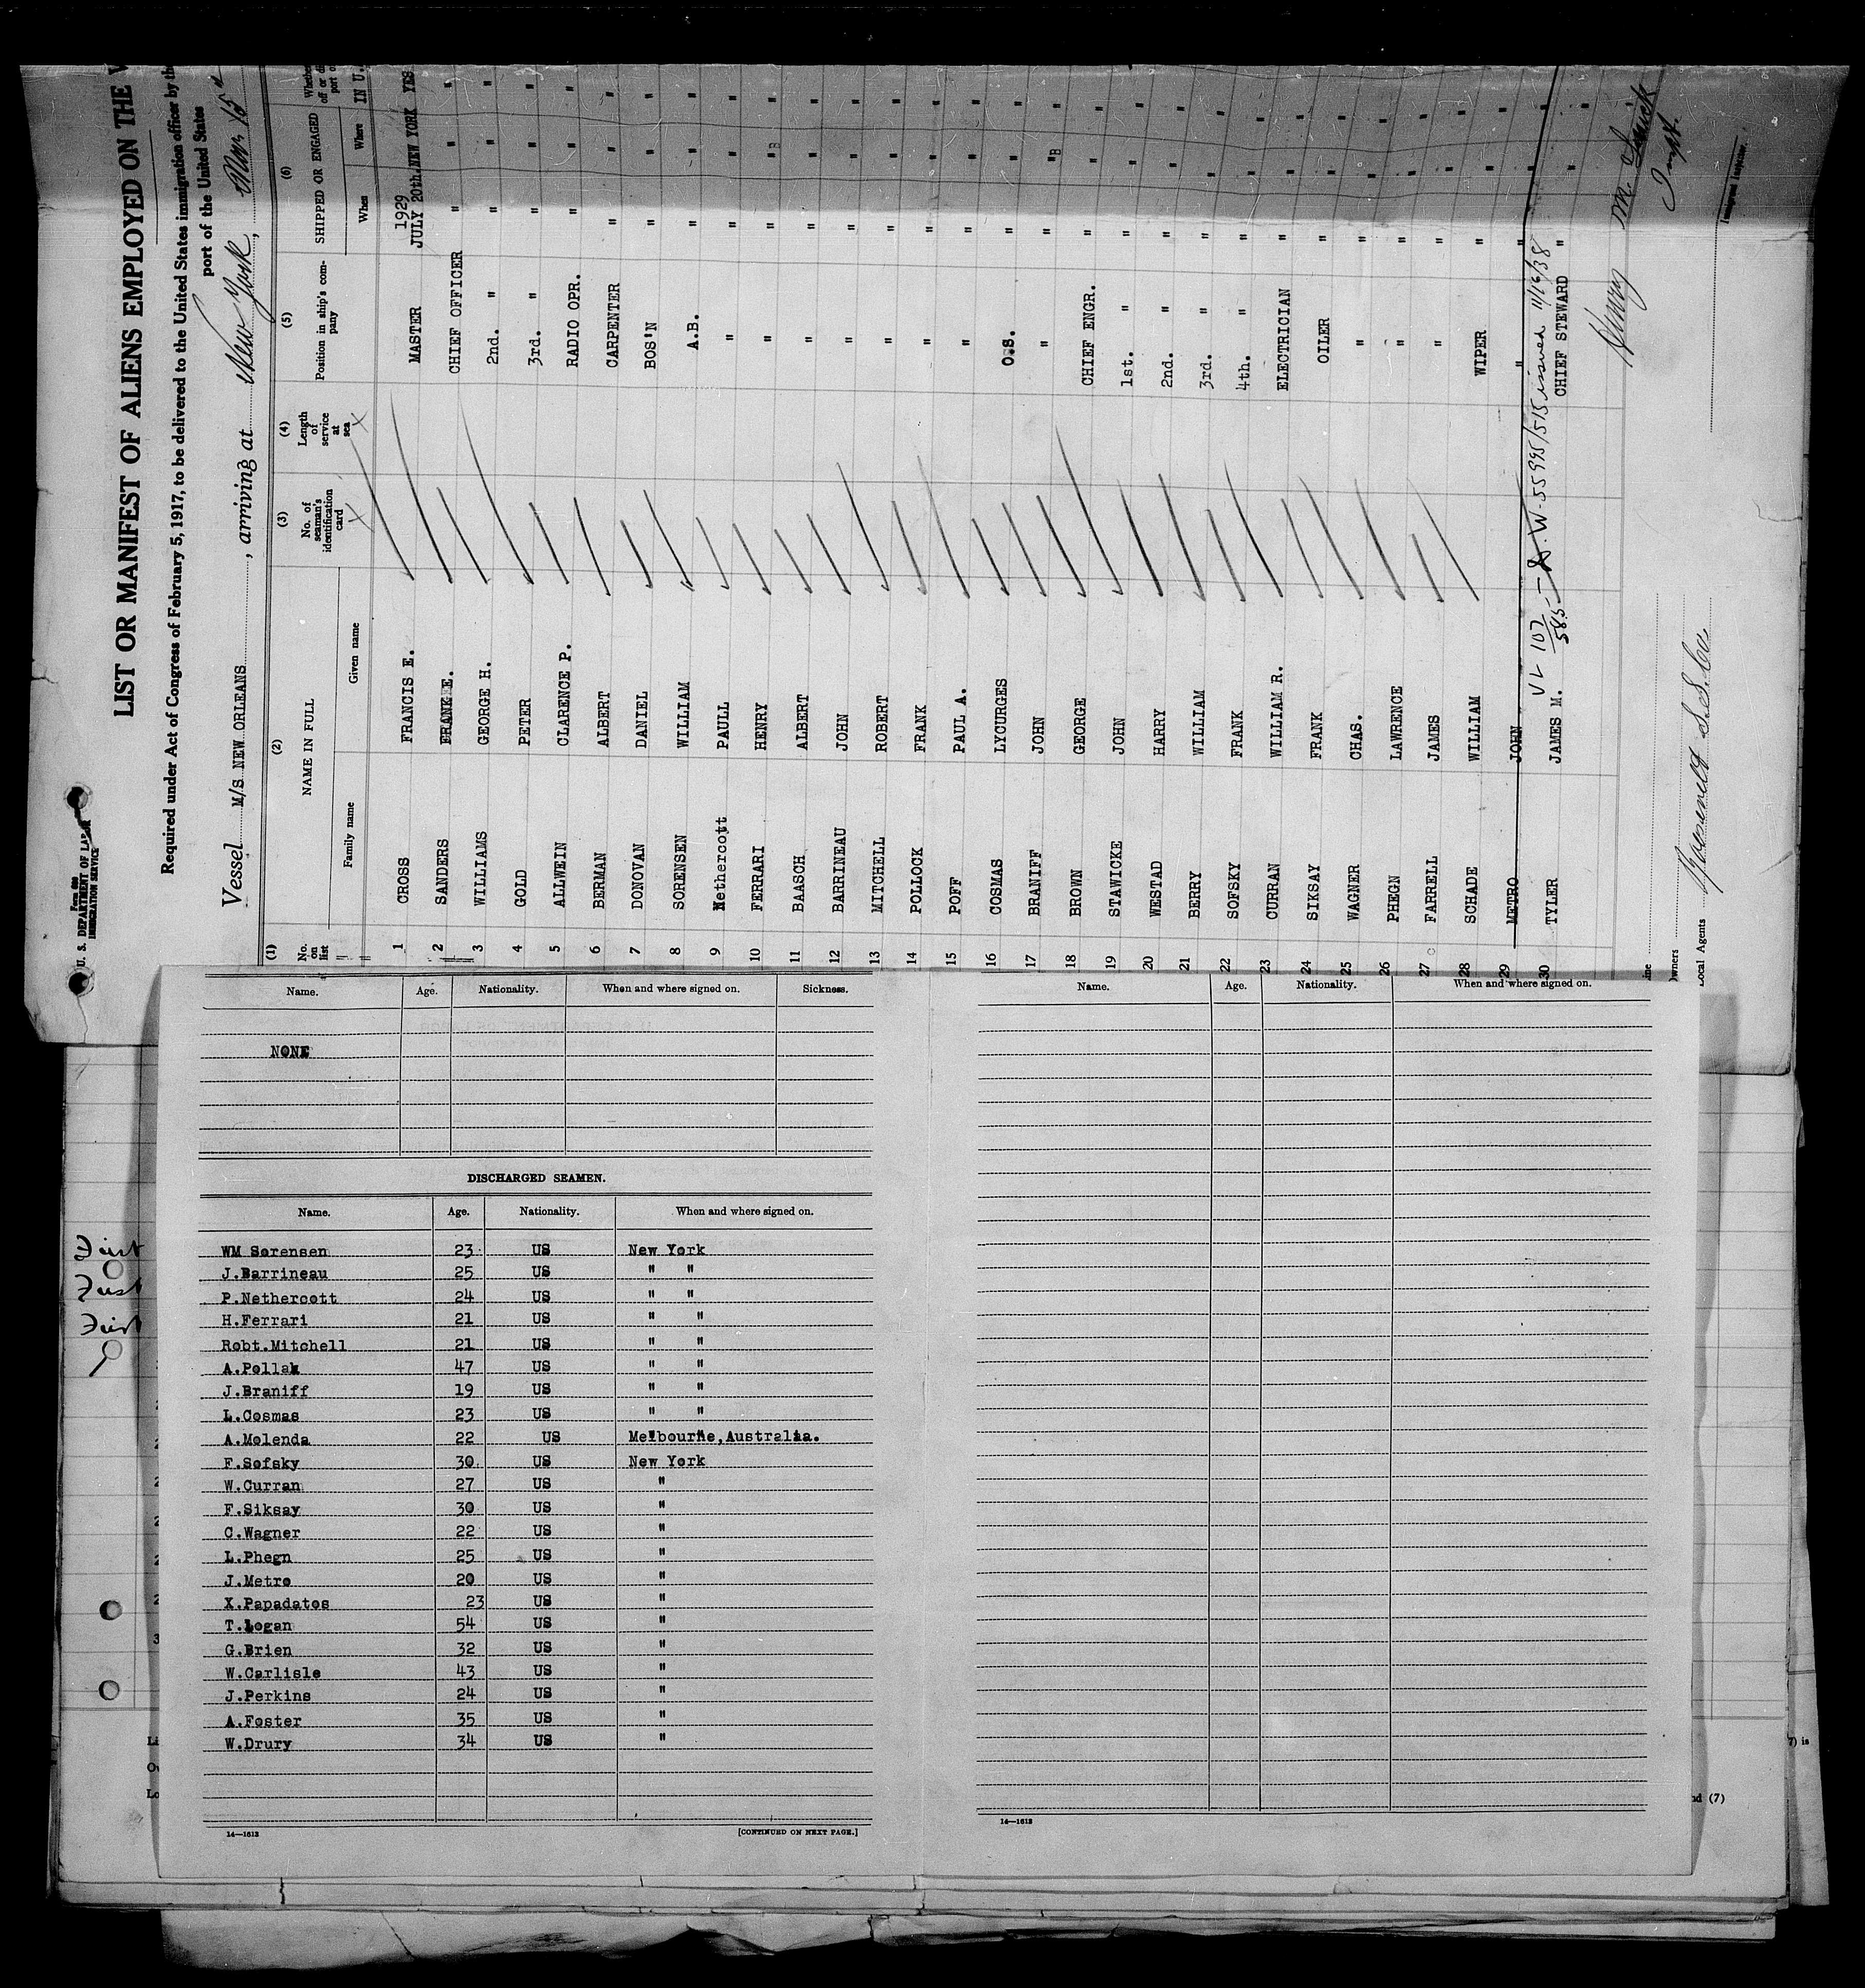 Form 680
U. S. DEPARTMENT OF LABOR
IMMIGRATION SERVICE
LIST OR MANIFEST OF ALIENS EMPLOYED ON THE
Required under Act of Congress of February 5, 1917, to be delivered to the United States immigration officer by the
port of the United States
Vessel M/S NEW ORLEANS, arriving at New York, Nov 15
(1) (2) (3) (4) (5) (6)
No. on list NAME IN FULL No. of seaman's identification card Length of service at sea Position in ship's company SHIPPED OR ENGAGED
Family name Given name When Where IN U.
1929
1 CROSS FRANCIS E. MASTER JULY 20th. NEW YORK YES
2 SANDERS FRANK E. CHIEF OFFICER " " "
3 WILLIAMS GEORGE H. 2nd. " " " "
4 GOLD PETER 3rd. " " " "
5 ALLWEIN CLARENCE P. RADIO OPR. " " "
6 BERMAN ALBERT CARPENTER " " "
7 DONOVAN DANIEL BOS'N " " "
8 SORENSEN WILLIAM A.B. " " "
9 Nethercott PAULL " " " "
10 FERRARI HENRY " " " "
11 BAASCH ALBERT " " " "
12 BARRINEAU JOHN " " " "
13 MITCHELL ROBERT " " " "
14 POLLOCK FRANK " " " "
15 POFF PAUL A. " " " "
16 COSMAS LYCURGES O.S. " " "
17 BRANIFF JOHN " " " "
18 BROWN GEORGE CHIEF ENGR. " " "
19 STAWICKE JOHN 1st. " " " "
20 WESTAD HARRY 2nd. " " " "
21 BERRY WILLIAM 3rd. " " " "
22 SOFSKY FRANK 4th. " " " "
23 CURRAN WILLIAM R. ELECTRICIAN " " "
24 SIKSAY FRANK OILER " " "
25 WAGNER CHAS. " " " "
26 PHEGN LAWRENCE " " " "
27 FARRELL JAMES " " " "
28 SCHADE WILLIAM WIPER " " "
29 METRO JOHN " " " "
VL 107/585 - S.W-55995/515 issued 11/16/38
30 TYLER JAMES M. CHIEF STEWARD " " "
Owners
Local Agents Roosevelt S.S. Co.
Immigrant Inspector.
Name. Age. Nationality. When and where signed on. Sickness.
NONE
DISCHARGED SEAMEN.
Name. Age. Nationality. When and where signed on.
WM Sorensen 23 US New York
J.Barrineau 25 US " "
P.Nethercott 24 US " "
H.Ferrari 21 US " "
Robt.Mitchell 21 US " "
A.Pollak 47 US " "
J.Braniff 19 US " "
L.Cosmas 23 US " "
A.Molenda 22 US Melbourne,Australia.
F.Sofsky 30 US New York
W.Curran 27 US "
F.Siksay 30 US "
C.Wagner 22 US "
L.Phegn 25 US "
J.Metro 20 US "
X.Papadatos 23 US "
T.Logan 54 US "
G.Brien 32 US "
W.Carlisle 43 US "
J.Perkins 24 US "
A.Foster 35 US "
W.Drury 34 US "
14—1613 [CONTINUED ON NEXT PAGE.]
Name. Age. Nationality. When and where signed on.
14—1613
First
First
First
7) is
nd (7)